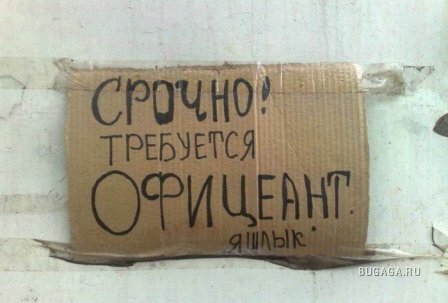 СРОЧНО!
ТРЕБУЕТСЯ
ОФИЦЕАНТ.
ЯШЛЫК
BUGAGA.RU